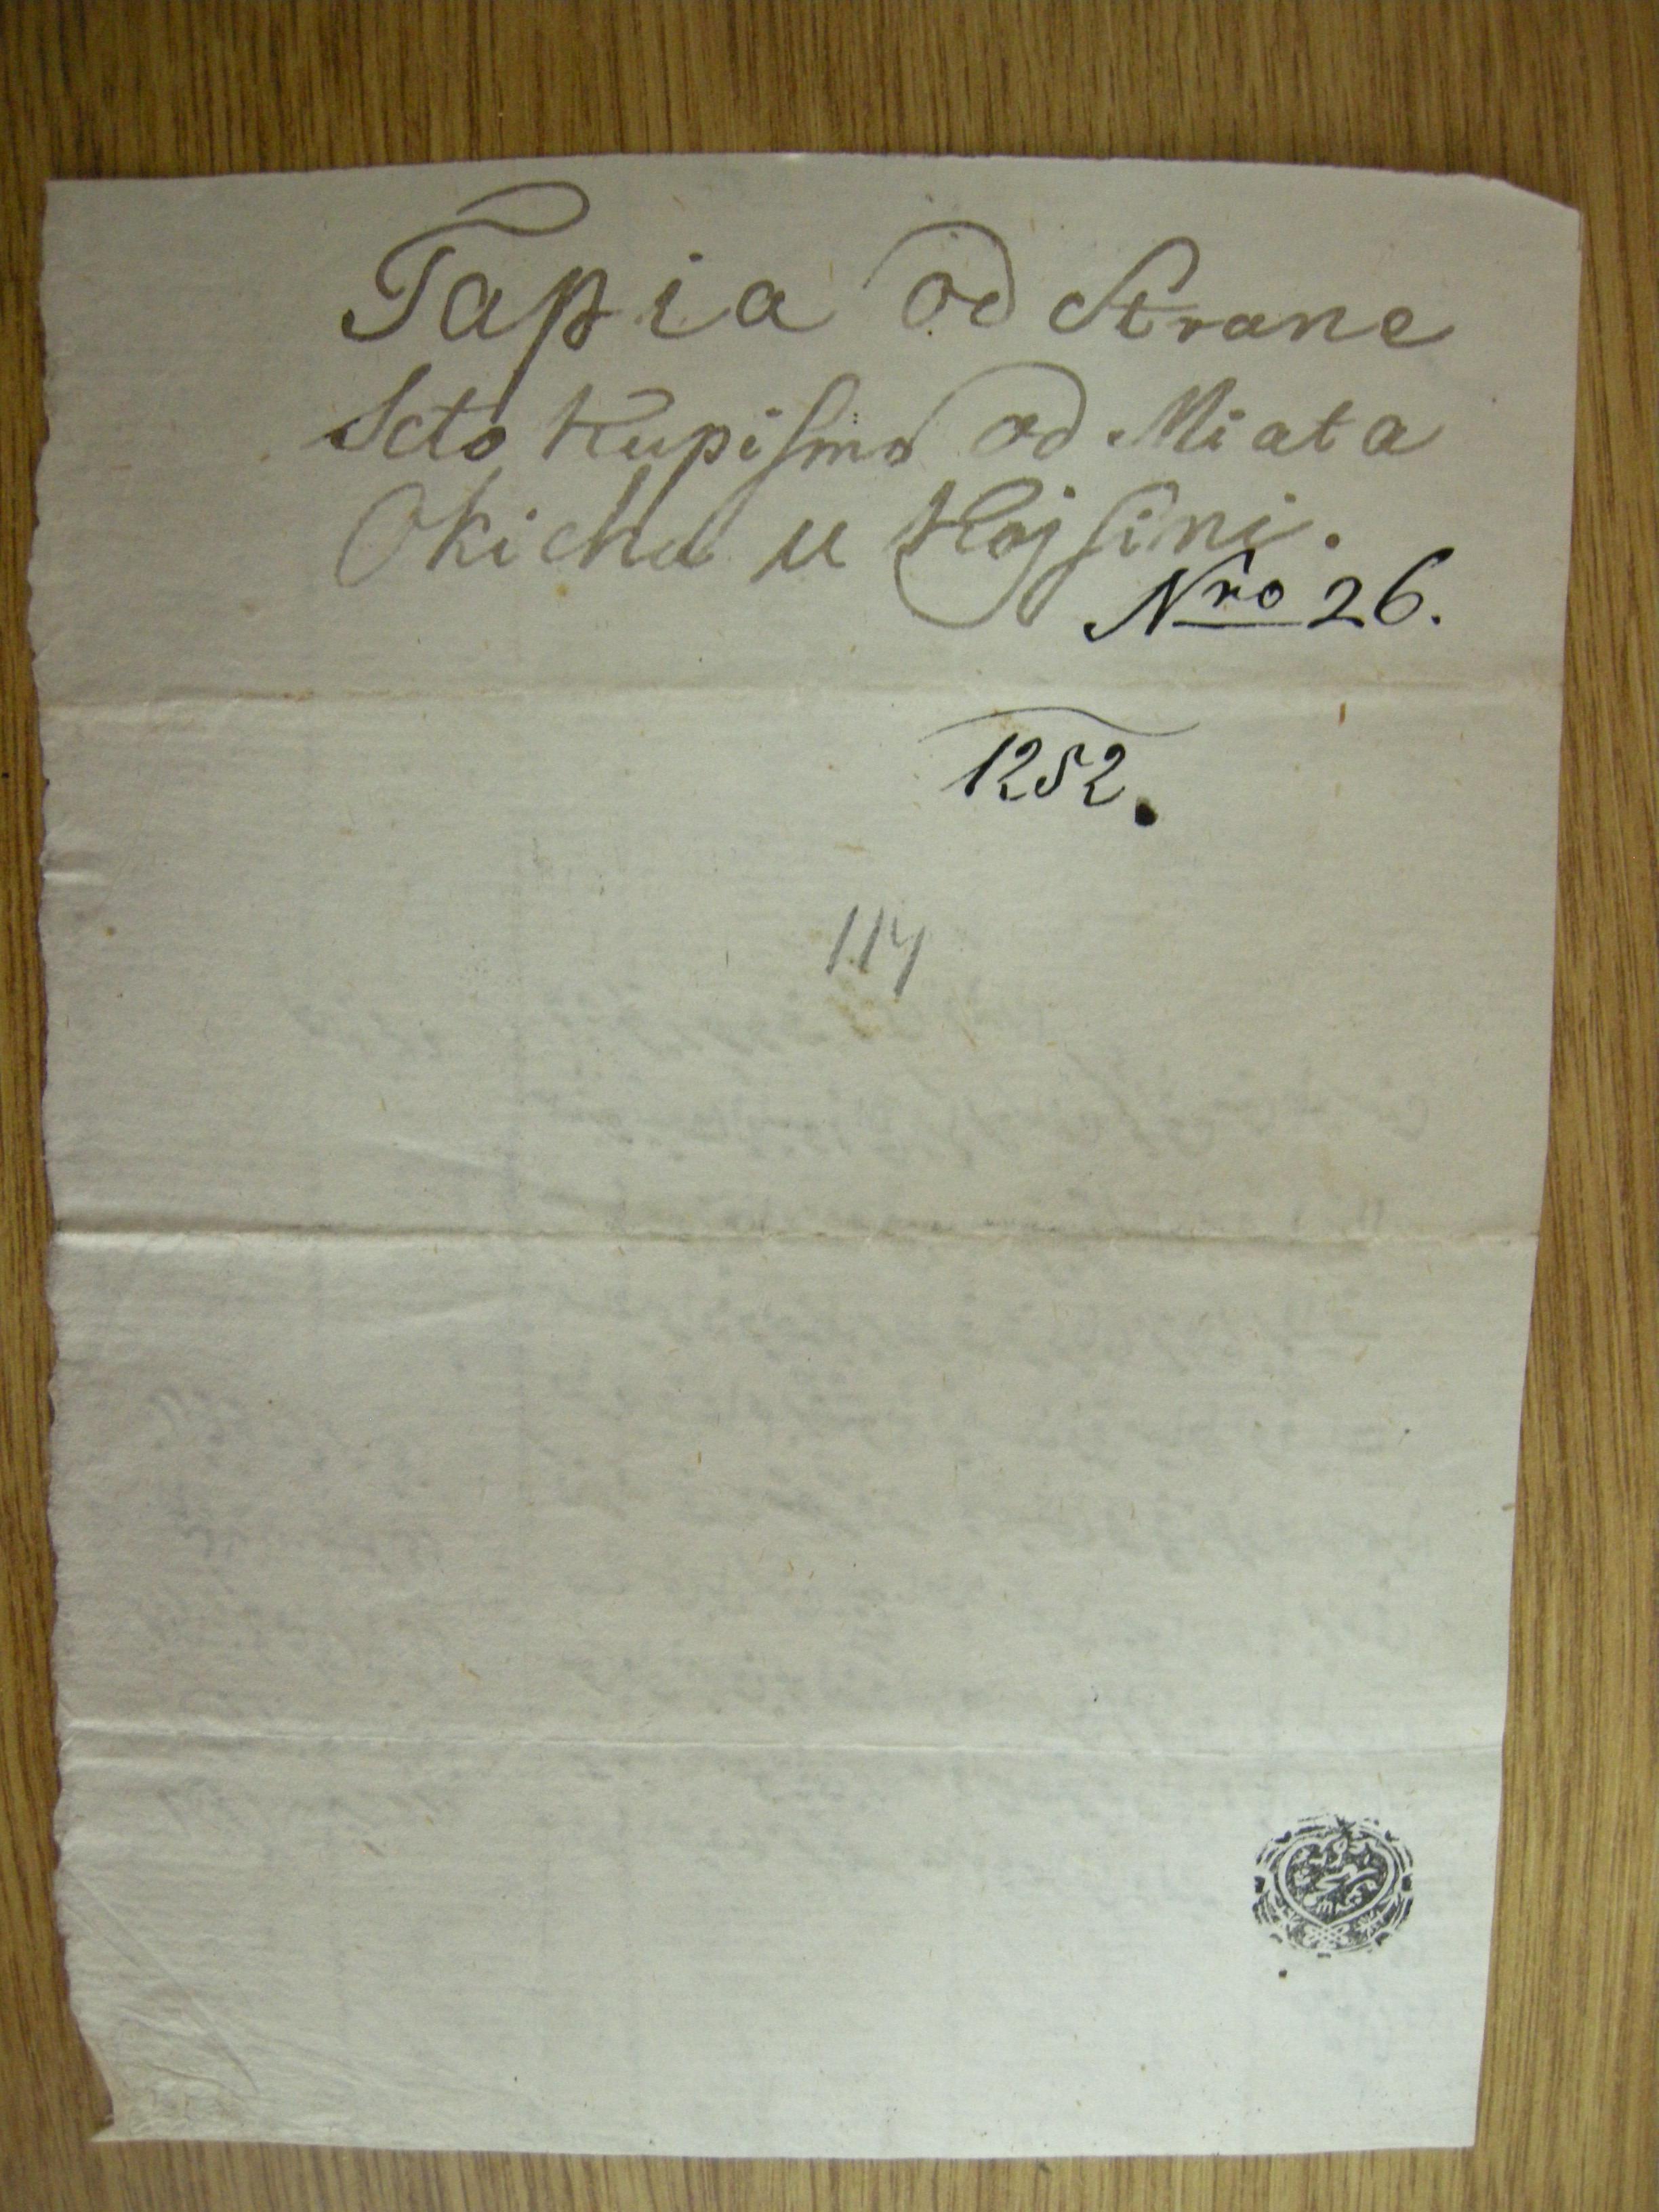 Tapia od Strane
Scto Kupismo od Miata
Okicha u Kojsini.
Nro 26.
1252.
114